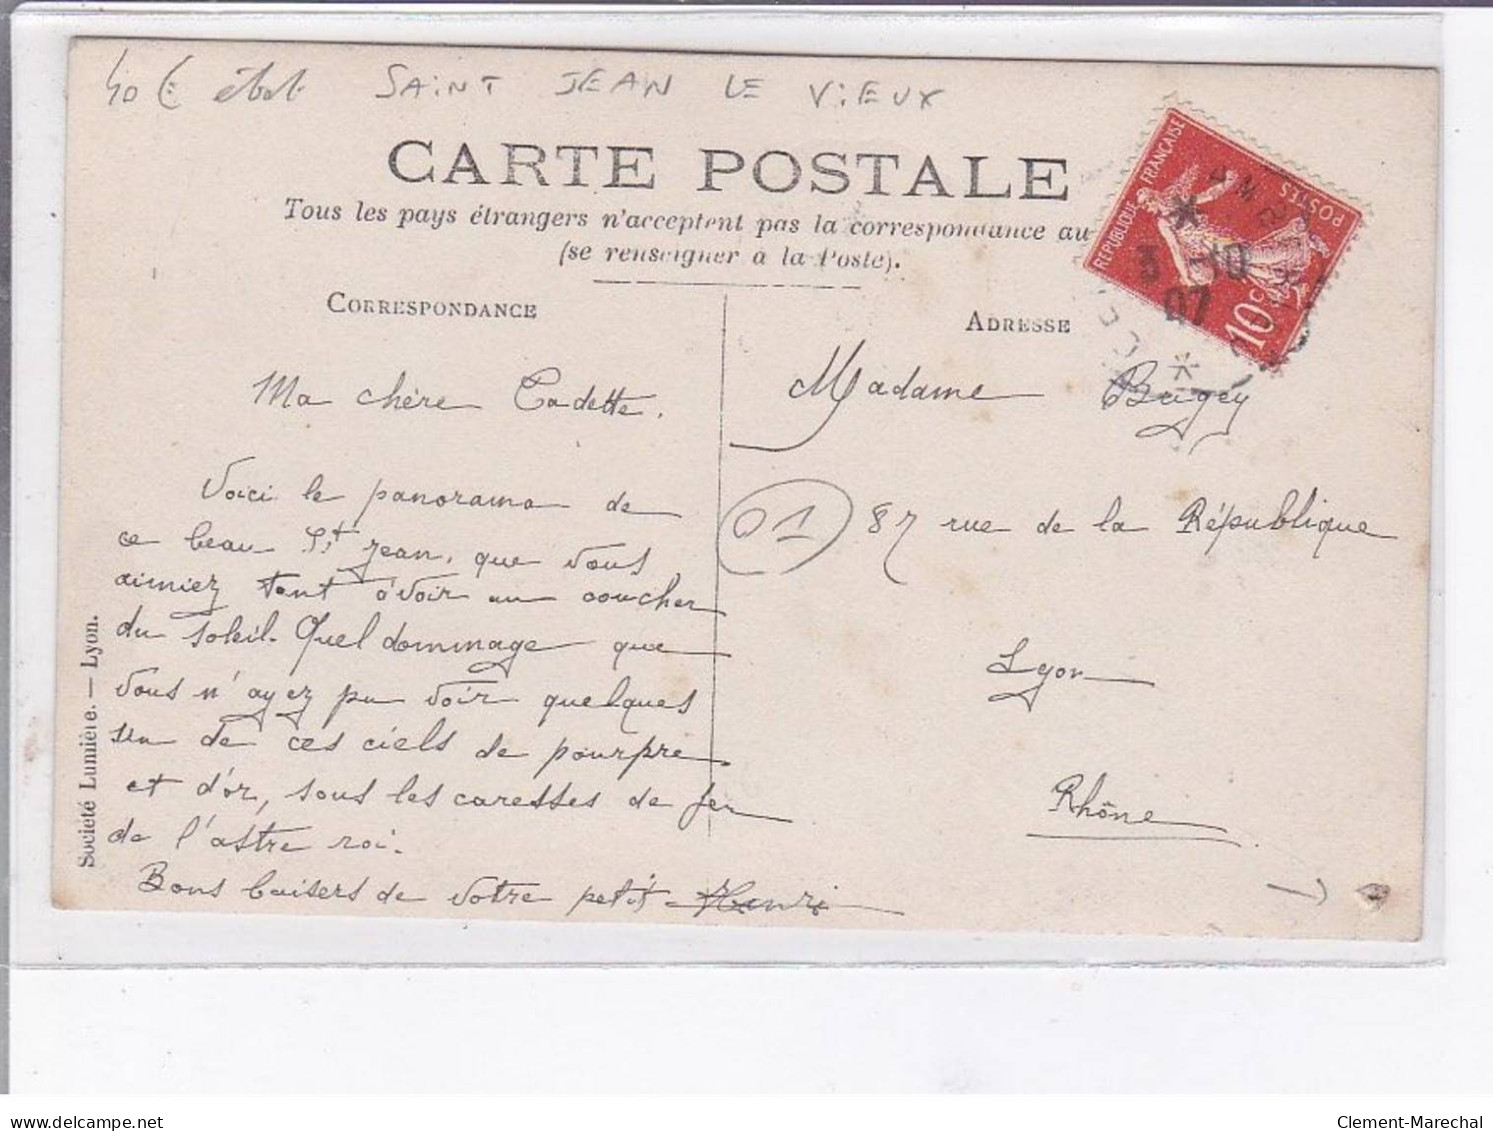 40 € état SAINT JEAN LE VIEUX
CARTE POSTALE
Tous les pays étrangers n'acceptent pas la correspondance au
(se renseigner à la Poste).
CORRESPONDANCE
Ma chère Cadette.
Voici le panorama de
ce beau St Jean, que vous
aimiez tant à voir au coucher
du soleil. Quel dommage que
vous n'ayez pu voir quelques
un de ces ciels de pourpre
et d'or, sous les caresses de feu
de l'astre roi.
Bons baisers de votre petit Henri
Société Lumière. — Lyon.
ADRESSE
Madame Bugey
01
87 rue de la République
Lyon
Rhône
RÉPUBLIQUE FRANÇAISE
POSTES
10c
3 -10
07
delcampe.net
Clement-Marechal